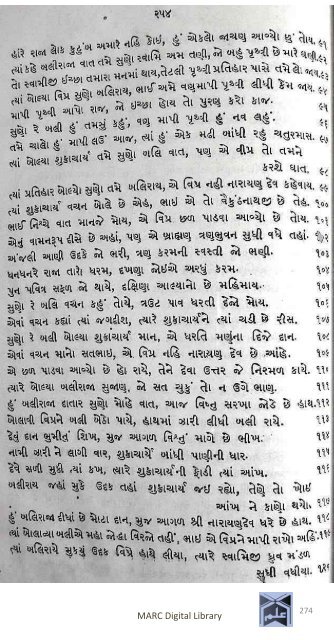 ૨૫૪
હાંરે રાજા લોક કુટુંબ અમારે નહિ કોઇ, હું એકલો જાચણ આવ્યો છું તોય. ૯૧
ત્યાં કહે બલીરાજા વાત તમે સુણો સ્વામિ અમ તણી, જે બહુ પૃથ્વી છે મારે ઘણી.૯૨
તો સ્વામીજી ઇચ્છા તમારા મનમાં થાય,તેટલી પૃથ્વી પ્રતિહાર પાસે તમે લો જાય.૯૩
ત્યાં બોલ્યા વિપ્ર સુણો બલિરાય, ભાઈ અમે વણમાપી પૃથ્વી લીધી કેમ જાય. ૯૪
માપી પૃથ્વી આપો રાજ, જે ઇચ્છા હોય તો પુરણ કરો કાજ. ૯૫
સુણો રે બલી હું તમસું કહું, વણ માપી પૃથ્વી હું નવ લહું. ૯૬
તમે ચાલો હું માપી લઉં આજ, ત્યાં હું એક મઢી બાંધી રહું ચતુરમાસ. ૯૭
ત્યાં બોલ્યા શુક્રાચાર્ય તમે સુણો બલિ વાત, પણ એ વીપ્ર તો તમને
કરશે ઘાત. ૯૮
ત્યાં પ્રતિહાર બોલ્યો સુણો તમે બલિરાય, એ વિપ્ર નહી નારાયણ દેવ કહેવાય. ૯૯
ત્યાં શુક્રાચાર્ય વચન બોલે છે એહ, ભાઈ એ તો વૈકુંઠનાથજી છે તેહ. ૧૦૦
ભાઈ નિશ્ચે વાત માનજે મોય, એ વિપ્ર છળ પાડવા આવ્યો છે તોય. ૧૦૧
એનું વામનરૂપ દીસે છે અહાં, પણ એ બ્રાહ્મણ ત્રણભુવન સુધી વધે તહાં. ૧૦૨
અંજલી આણી ઉદકે જે ભરી, ત્રણ કરમની સ્વસ્તી જે ભણી. ૧૦૩
ધનધનરે રાજા તારો ધરમ, દખણા જોઈએ અરધું કરમ. ૧૦૪
પુન પવિત્ર સફળ જે થાયે, દક્ષિણા આલ્યાનો છે મહિમાય. ૧૦૫
સુણો રે બલિ વચન કહું તોયે, ત્રઉટ પાવ ધરતી દેજે મોય. ૧૦૬
એવાં વચન કહ્યાં ત્યાં જગદીશ, ત્યારે શુક્રાચાર્યને ત્યાં ચડી છે રીસ. ૧૦૭
સુણો રે બલી બોલ્યા શુક્રાચાર્ય માન, એ ધરતિ મણુંના દિજે દાન. ૧૦૮
એવાં વચન માનો સતભાઇ, એ વિપ્ર નહિ નારાયણ દેવ છે આંહિ. ૧૦૯
એ છળ પાડવા આવ્યો છે હો રાયે, તેને દેવા ઉત્તર જે નિરમળ કાયે. ૧૧૦
ત્યારે બોલ્યા બલીરાજા સુજાણ, જે સત ચુકું તો ન ઉગે ભાણ. ૧૧૧
હું બલીરાજા દાતાર સુણો મોહે વાત, આજ વિષ્નુ સરખા જોડે છે હાથ.૧૧૨
બોલાવી વિપ્રને બલી બેઠો પાયે, હાથમાં ઝારી લીધી બલી રાયે. ૧૧૩
દેવું દાન ભુમીનું શિખ, મુજ આગળ વિશ્નુ માગે છે ભીખ. ૧૧૪
નામી ઝારી ને લાગી વાર, શુક્રાચાર્યે બાંધી પાણીની ધાર. ૧૧૫
દેવે સળી સુધી ત્યાં કખ, ત્યારે શુક્રાચાર્યની ફોડી ત્યાં આંખ. ૧૧૬
બલીરાય જહાં મુકે ઉદક તહાં શુક્રાચાર્ય જઇ રહ્યો, તેણે તો ખોઇ
આંખ ને કાણો થયો. ૧૧૭
હું બલિરાજા દીધાં છે મોટા દાન, મુજ આગળ શ્રી નારાયણુદેવ ધરે છે હાથ. ૧૧૮
ત્યાં બોલાવ્યા બલીએ મહા જોદ્ધા વિરને તહીં, ભાઇ એ વિપ્રને માપી રાખો અહિં.૧૧૯
ત્યાં બલિરાયે સુકયું ઉદક વિપ્રે હાથે લીયા, ત્યારે સ્વામિજી ધ્રુવ મંડળ
સુધી વધીયા. ૧૨૦
MARC Digital Library
274